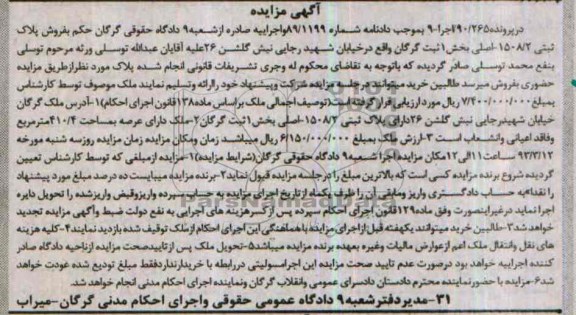 آگهی مزایده
درپرونده۹۰/۲۶۵اجرا-۹ بموجب دادنامه شماره ۸۹/۱۱۹۹واجراییه صادره ازشعبه۹ دادگاه حقوقی گرگان حکم بفروش پلاک
ثبتی ۱۵۰۸/۲-اصلی بخش۱ثبت گرگان واقع درخیابان شهید رجایی نبش گلشن ۲۶علیه آقایان عبدالله توسلی ورثه مرحوم توسلی
بنفع محمد توسلی صادر گردیده که باتوجه به تقاضای محکوم له وجری تشریفات قانونی انجام شده پلاک مورد نظرازطریق مزایده
حضوری بفروش میرسد طالبین خرید میتوانند در جلسه مزایده شرکت وپیشنهاد خود راارائه وتسلیم نمایند ملک موصوف توسط کارشناس
بمبلغ۷/۴۰۰/۰۰۰/۰۰۰ ریال مورد ارزیابی قرار گرفته است(توصیف اجمالی ملک براساس ماده۱۳۸قانون اجرای احکام)۱-آدرس ملک گرگان
خیابان شهیدرجایی نبش گلشن ۲۶دارای پلاک ثبتی ۱۵۰۸/۲-اصلی بخش۱ثبت گرگان۲-ملک دارای عرصه بمساحت ۴۱۰/۴مترمربع
وفاقد اعیانی وانشعاب است ۳-ارزش ملک بمبلغ ۶/۱۵۰/۰۰۰/۰۰۰ ریال میباشد زمان ومکان مزایده زمان مزایده روزسه شنبه مورخه
۹۳/۳/۱۲ ساعت۱۱الی۱۲مکان مزایده:اجرا شعبه۹ دادگاه حقوقی گرگان(شرایط مزایده)۱-مزایده ازمبلغی که توسط کارشناس تعیین
گردیده شروع برنده مزایده کسی است که بالاترین مبلغ رادرجلسه مزایده قبول نماید۲-برنده مزایده میبایست ده درصد مبلغ مورد پیشنهاد
را نقدابه حساب دادگستری واریز ومابقی آن را ظرف یکماه ازتاریخ اجرای مزایده به حساب سپرده واریزوقبض واریزشده را تحویل دایره
اجرا نماید درغیراینصورت وفق ماده۱۲۹قانون اجرای احکام سپرده پس ازکسرهزینه های اجرایی به نفع دولت ضبط وآگهی مزایده تجدید
خواهدشد۳-طالبین خرید میتوانند یکهفته قبل ازاجرای مزایده باهماهنگی این اجرای احکام ازملک توقیف شده بازدید نمایند۴-کلیه هزینه
های نقل وانتقال ملک اعم ازعوارض مالیات وغیره بعهده برنده مزایده میباشد۵-تحویل ملک پس ازتاییدصحت مزایده ازناحیه دادگاه صادر
کننده اجراییه خواهد بود درصورت عدم تایید صحت مزایده این اجرامسولیتی دررابطه با خریدارنداردفقط مبلغ تودیع شده عودت خواهد
شد۶-مزایده با حضورنماینده محترم دادستان دادسرای عمومی وانقلاب گرگان ونماینده اجرای احکام مدنی انجام خواهد شد.
۳۱-مدیردفترشعبه۹ دادگاه عمومی حقوقی واجرای احکام مدنی گرگان-میراب